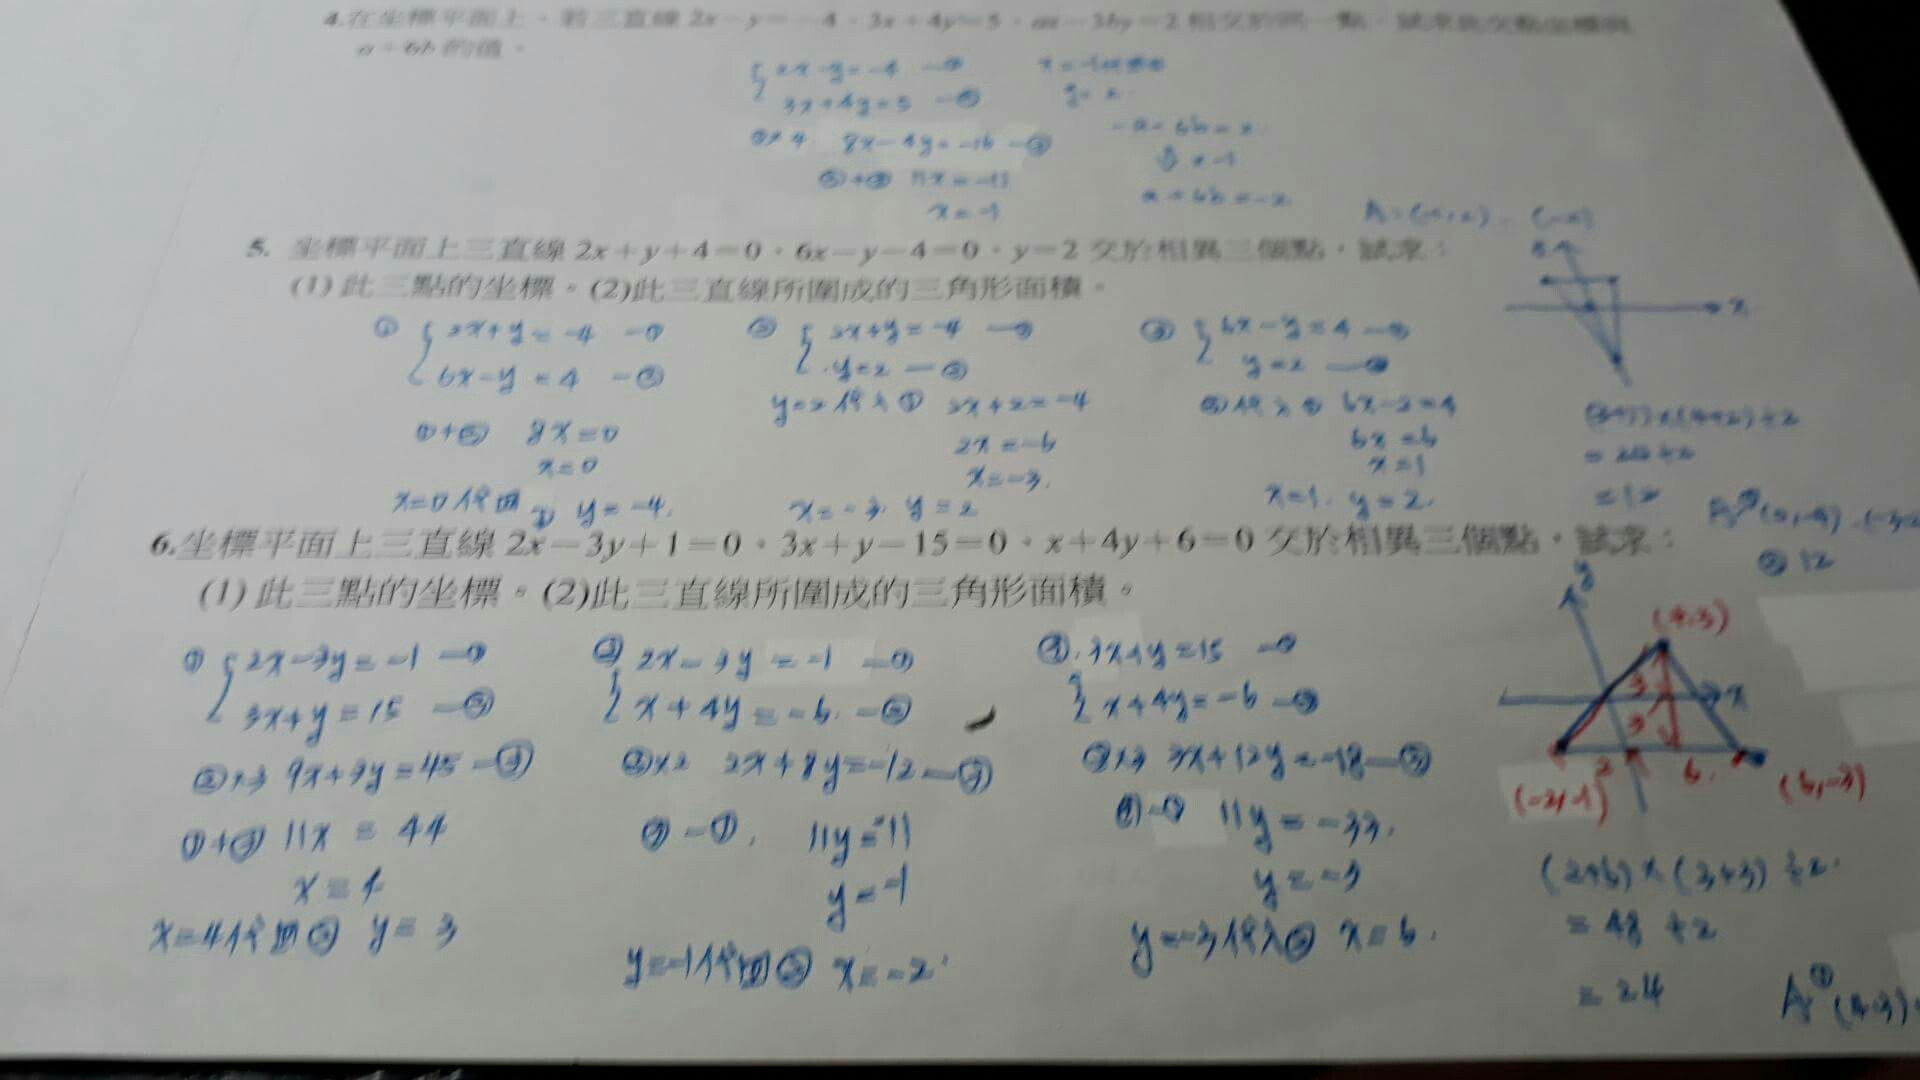 4.在坐標平面上,若三直線 2x－y＝－4、3x＋4y＝5、ax－3by＝2 相交於同一點,試求此交點坐標與
a＋6b 的值。
2x－y＝－4 —①
3x＋4y＝5 —②
①×4 8x－4y＝－16 —③
②＋③ 11x＝－11
x＝－1
y＝2
－a－6b＝2
×－1
a＋6b＝－2
5. 坐標平面上三直線 2x＋y＋4＝0、6x－y－4＝0、y＝2 交於相異三個點,試求:
(1) 此三點的坐標。(2)此三直線所圍成的三角形面積。
① 2x＋y＝－4 —①
6x－y＝4 —②
①＋② 8x＝0
x＝0
x＝0代回① y＝－4
② 2x＋y＝－4 —①
y＝2 —②
y＝2代入① 2x＋2＝－4
2x＝－6
x＝－3
x＝－3 y＝2
③ 6x－y＝4 —①
y＝2 —②
②代入① 6x－2＝4
6x＝6
x＝1
x＝1. y＝2
x
＝12
② 12
6.坐標平面上三直線 2x－3y＋1＝0、3x＋y－15＝0、x＋4y＋6＝0 交於相異三個點,試求:
(1) 此三點的坐標。(2)此三直線所圍成的三角形面積。
① 2x－3y＝－1 —①
3x＋y＝15 —②
②×3 9x＋3y＝45 —③
①＋③ 11x＝44
x＝4
x＝4代回② y＝3
② 2x－3y＝－1 —①
x＋4y＝－6 —②
②×2 2x＋8y＝－12 —③
③－① 11y＝－11
y＝－1
y＝－1代回② x＝－2
③ 3x＋y＝15 —①
x＋4y＝－6 —②
②×3 3x＋12y＝－18 —③
③－① 11y＝－33
y＝－3
y＝－3代入② x＝6
y
(4,3)
3
x
3
2 6
(－2,－1)
(6,－3)
(2＋6)×(3＋3)÷2
＝48÷2
＝24
A① (4,3)